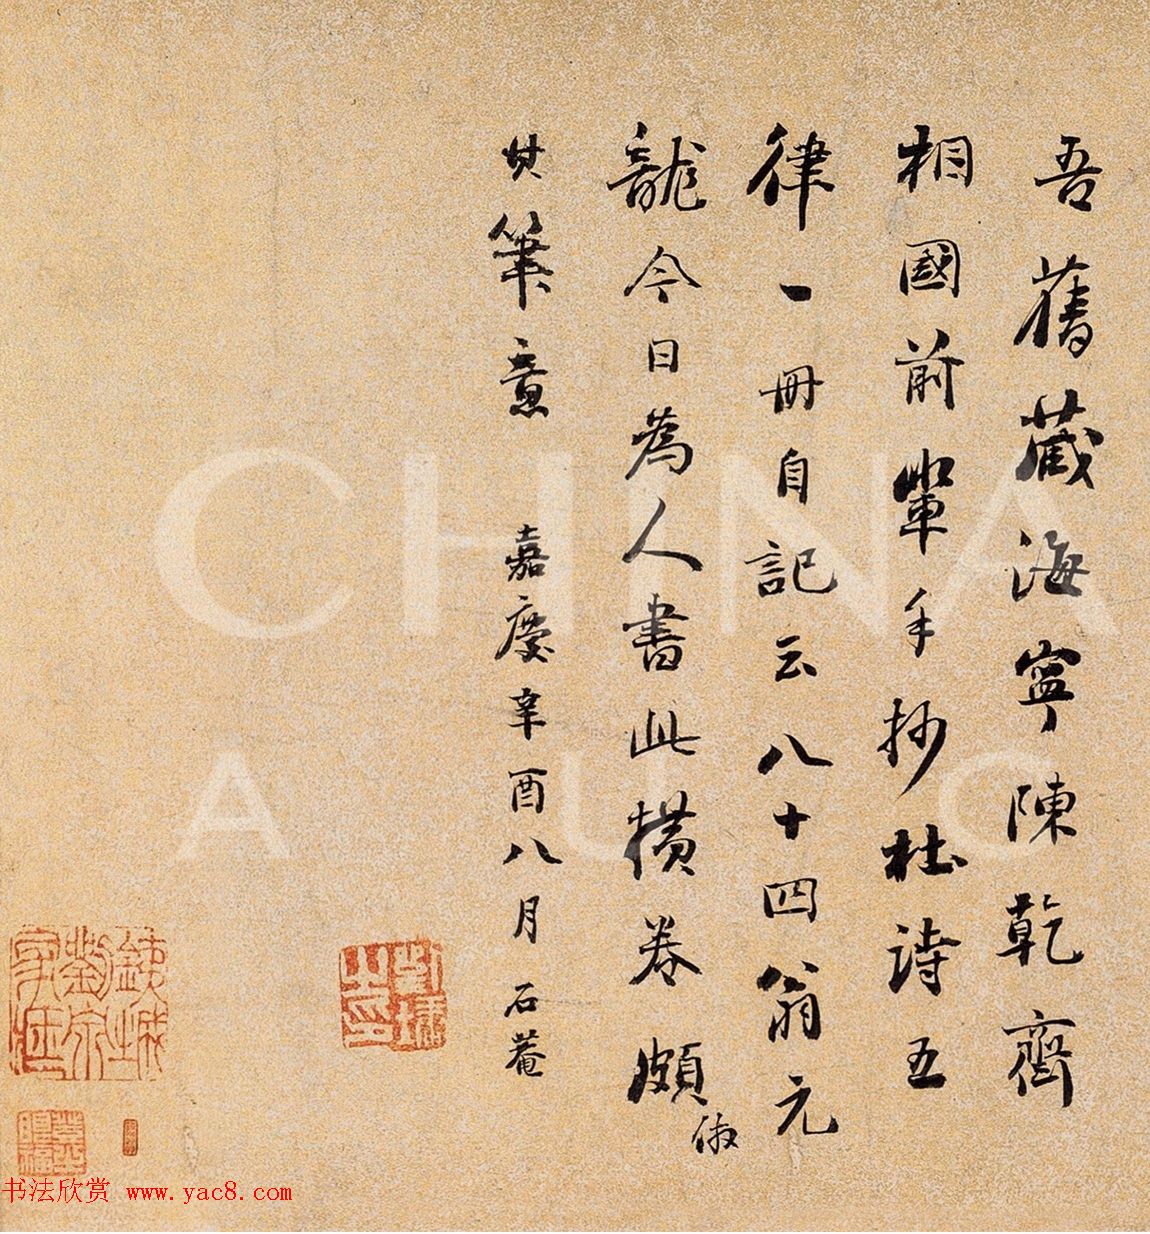 吾舊藏海寧陳乾齋
相國前輩手抄杜詩五
律一冊自記云八十四翁元
龍今日為人書此橫卷頗
倣
其筆意 嘉慶辛酉八月 石菴
劉墉之印
CHINA
AUC
书法欣赏 www.yac8.com